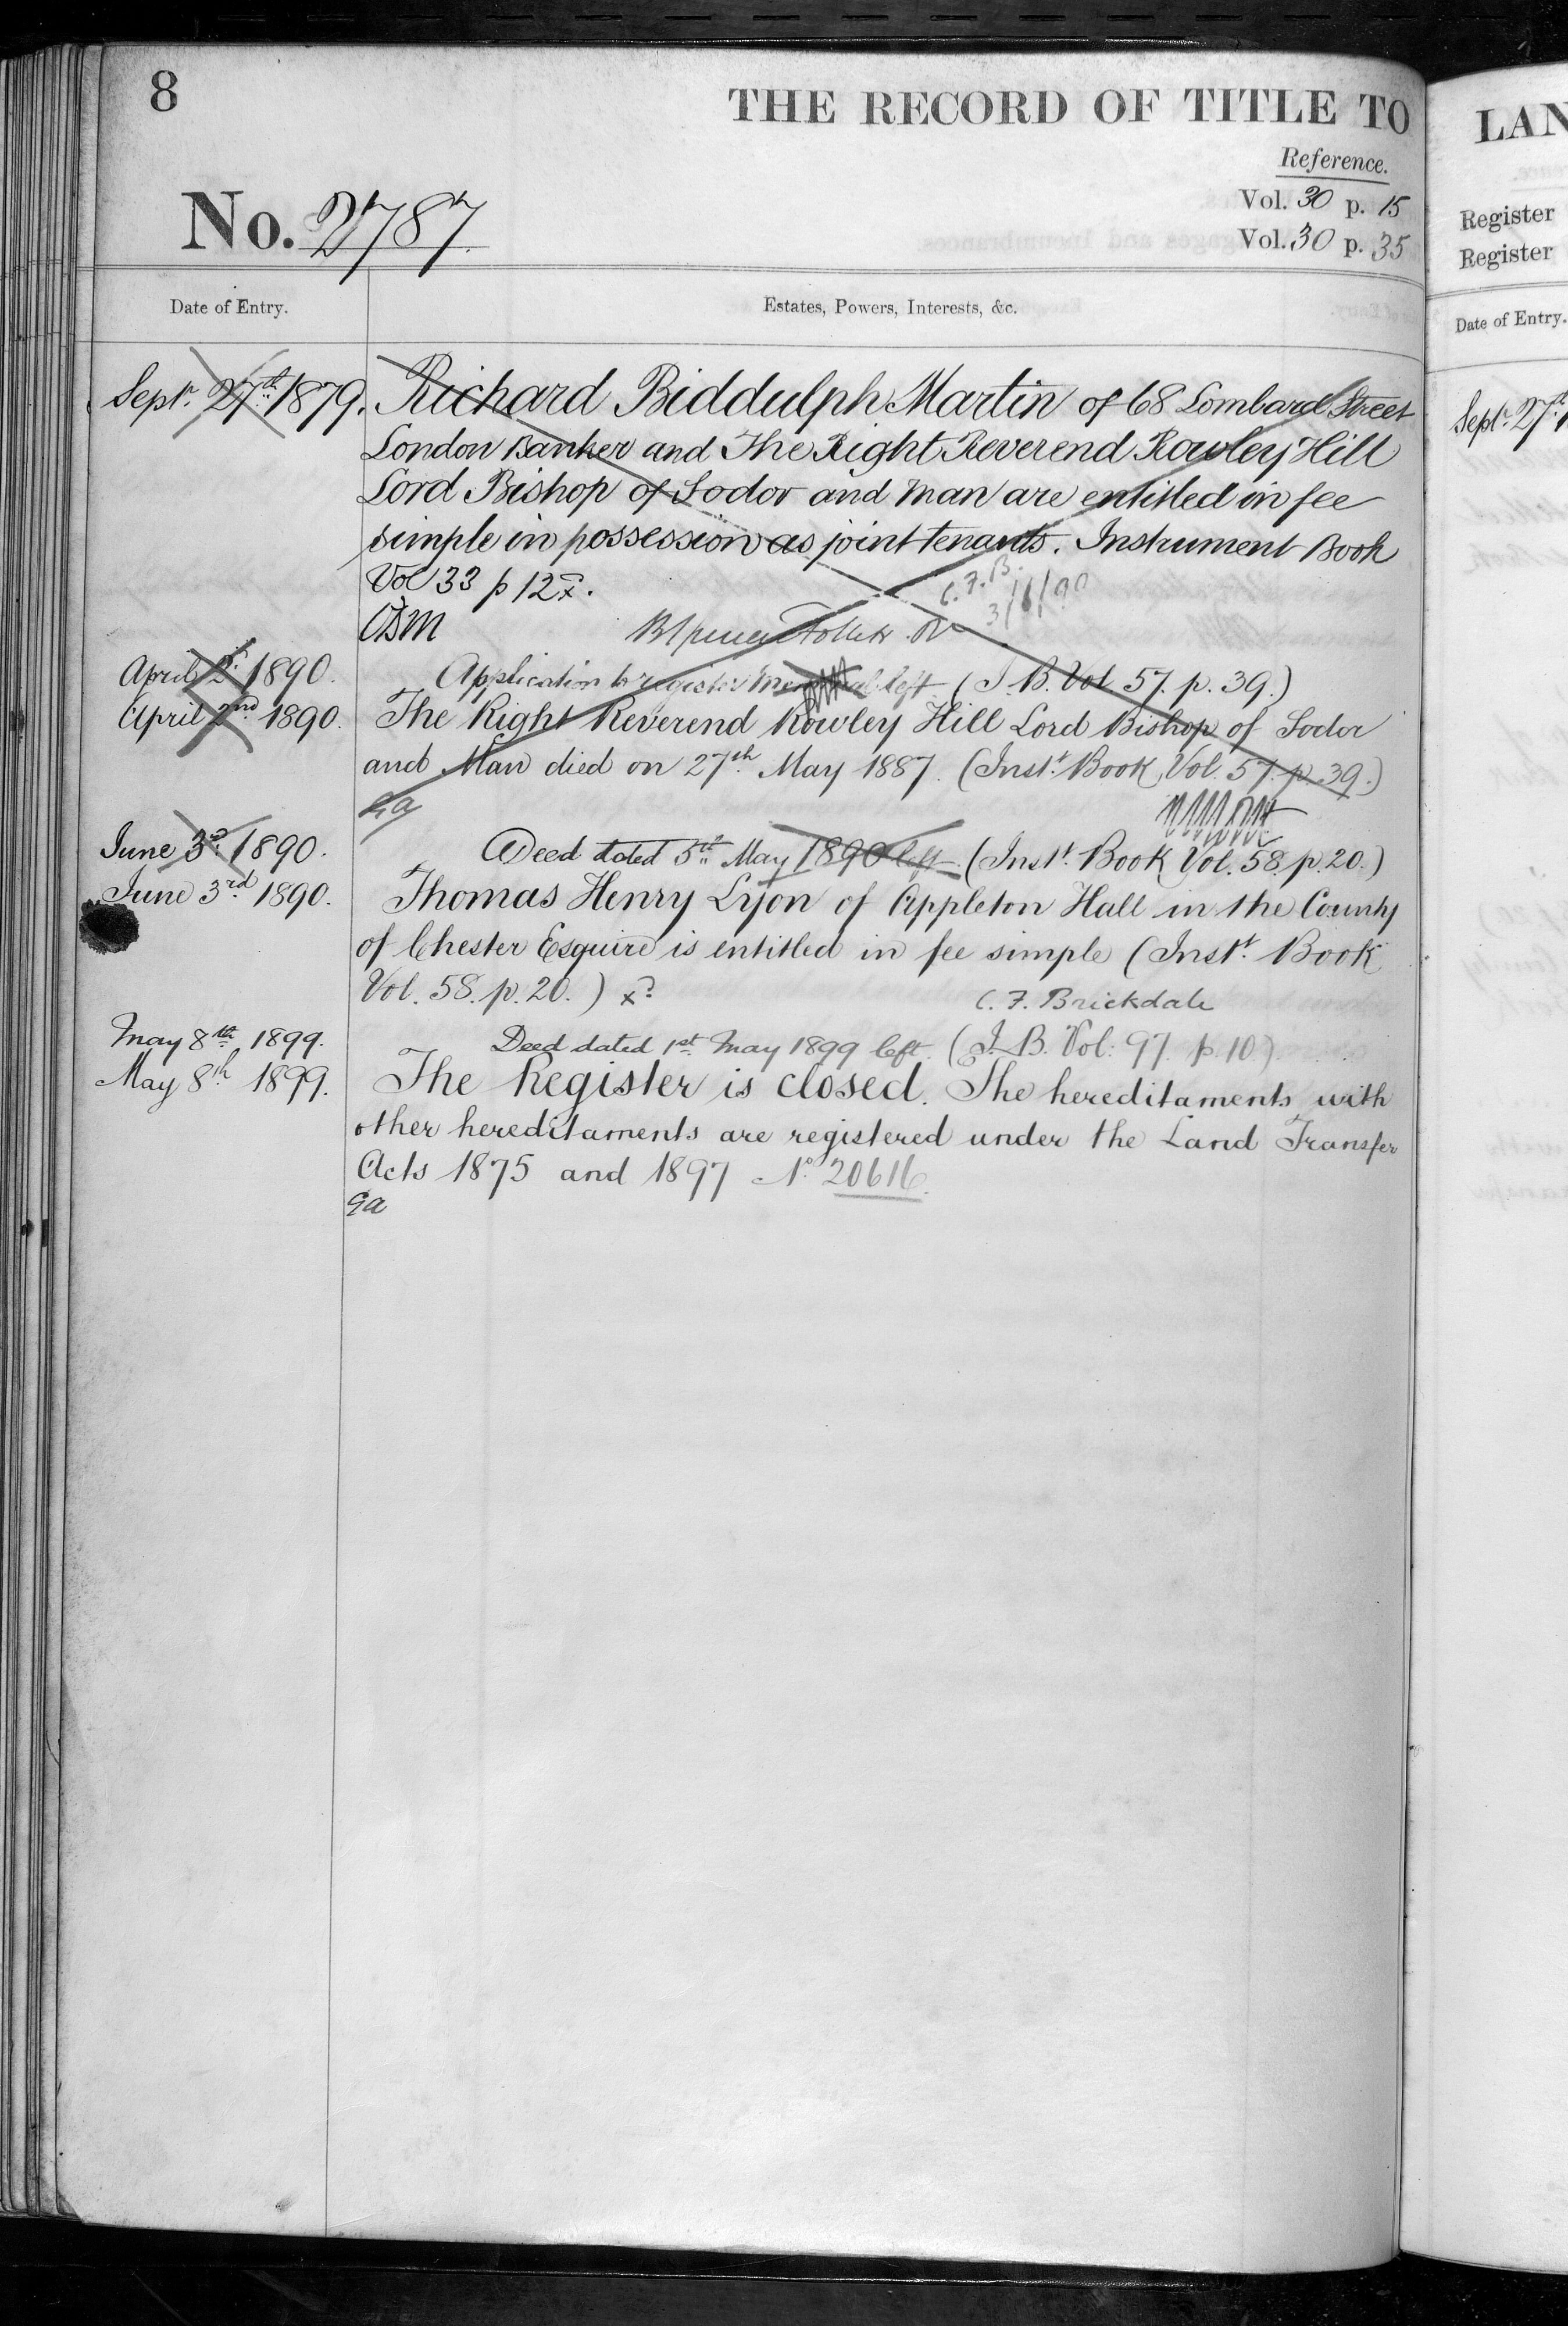 8
THE RECORD OF TITLE TO
Reference.
No. 2787
Vol. 30 p. 15
Vol. 30 p. 35
Date of Entry.
Estates, Powers, Interests, &c.
Septr. 27th 1879. Richard Biddulph Martin of 68 Lombard Street
London Banker and The Right Reverend Rowley Hill
Lord Bishop of Sodor and Man are entitled in fee
simple in possession as joint tenants. Instrument Book
Vol 33 p 12 x.
C.F.B.
3/6/90
April 2d. 1890. Application to register left (I. B. Vol 57. p. 39.)
April 2nd 1890. The Right Reverend Rowley Hill Lord Bishop of Sodor
and Man died on 27th May 1887. (Instt. Book Vol. 57. p. 39.)
June 3d. 1890. Deed dated 5th May 1890 left (Instt. Book Vol. 58. p. 20.)
June 3rd 1890. Thomas Henry Lyon of Appleton Hall in the County
of Chester Esquire is entitled in fee simple (Instt. Book
Vol. 58. p. 20.) x
C. F. Brickdale
May 8th 1899. Deed dated 1st May 1899 left. (I. B. Vol: 97 p. 10)
May 8th 1899. The Register is closed. The hereditaments with
other hereditaments are registered under the Land Transfer
Acts 1875 and 1897 No. 20616.
ga
LAN
Register
Register
Date of Entry.
Septr. 27th